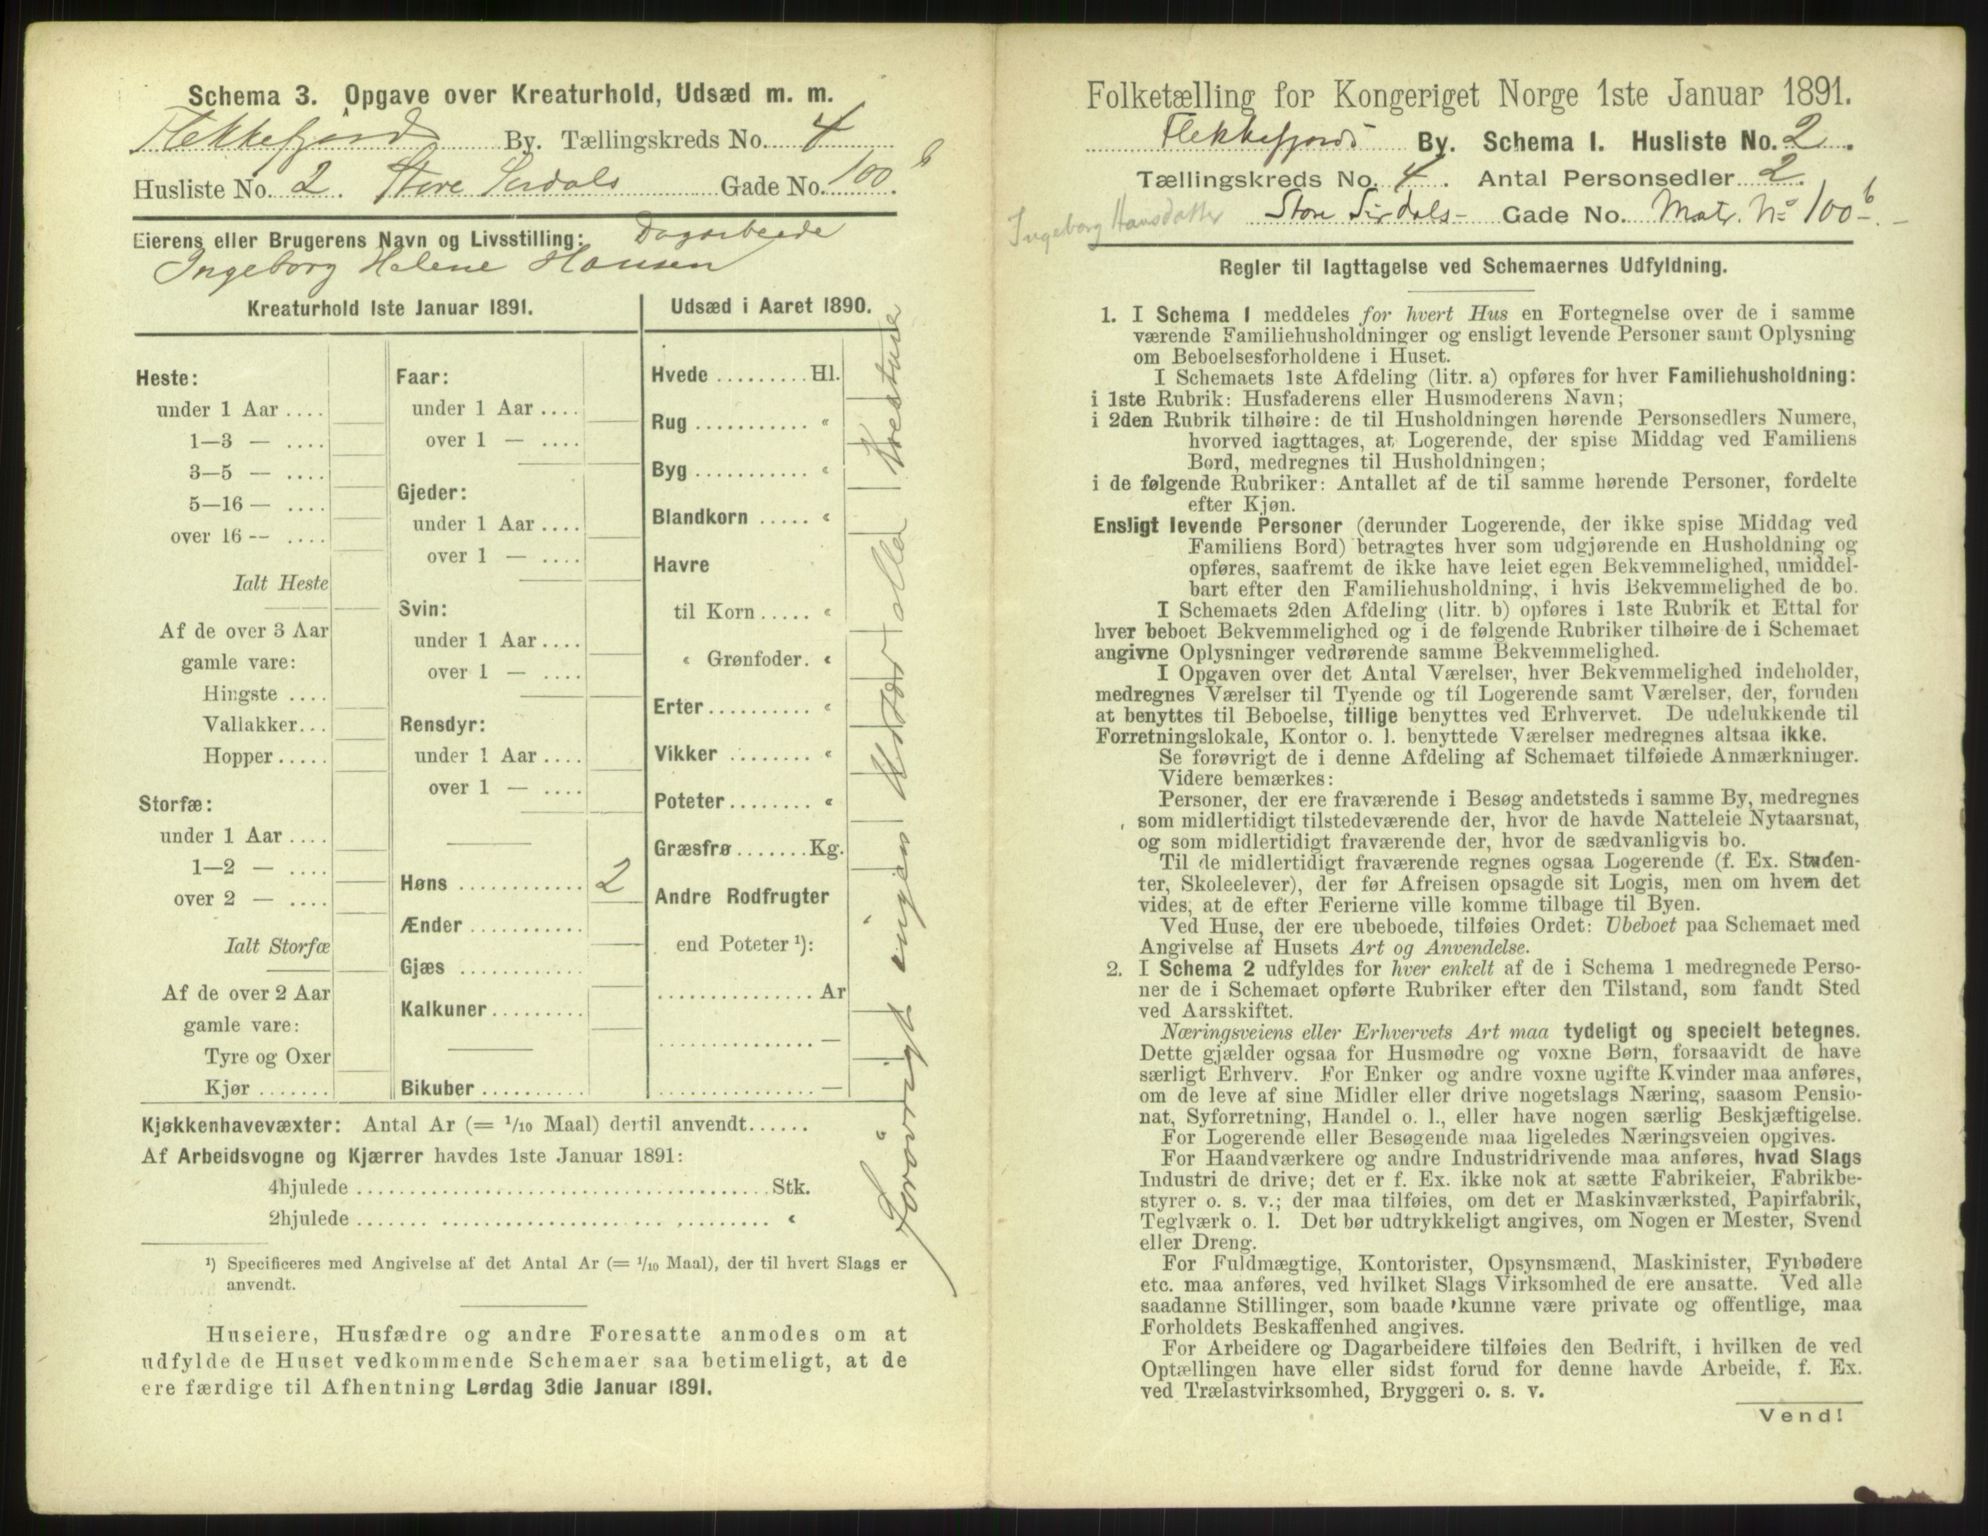 Schema 3. Opgave over Kreaturhold, Udsæd m. m.
Flekkefjord By. Tællingskreds No. 4
Husliste No. 2. Store Sirdals Gade No. 100 b
Eierens eller Brugerens Navn og Livsstilling: Dagarbeide
Ingeborg Helene Hansen
Kreaturhold 1ste Januar 1891.
Heste:
under 1 Aar ....
1—3 — ....
3—5 — ....
5—16 — ....
over 16 — ....
Ialt Heste
Af de over 3 Aar
gamle vare:
Hingste ....
Vallakker...
Hopper.....
Storfæ:
under 1 Aar ....
1—2 — ....
over 2 — ....
Ialt Storfæ
Af de over 2 Aar
gamle vare:
Tyre og Oxer
Kjør .......
Faar:
under 1 Aar ....
over 1 — ....
Gjeder:
under 1 Aar ....
over 1 — ....
Svin:
under 1 Aar ....
over 1 — ....
Rensdyr:
under 1 Aar ....
over 1 — ....
Høns ............ 2
Ænder ...........
Gjæs ............
Kalkuner.........
Bikuber ..........
Udsæd i Aaret 1890.
Hvede ......... Hl.
Rug ........... "
Byg ........... "
Blandkorn ..... "
Havre
til Korn ..... "
" Grønfoder. "
Erter.......... "
Vikker ........ "
Poteter........ "
Græsfrø.......Kg.
Andre Rodfrugter
end Poteter ¹):
............... Ar
............... —
............... —
Forøvrigt ingen Udsæd eller Kreature
Kjøkkenhavevæxter: Antal Ar (= 1/10 Maal) dertil anvendt......
Af Arbeidsvogne og Kjærrer havdes 1ste Januar 1891:
4hjulede ....................................... Stk.
2hjulede ....................................... "
¹) Specificeres med Angivelse af det Antal Ar (= 1/10 Maal), der til hvert Slags er
anvendt.
Huseiere, Husfædre og andre Foresatte anmodes om at
udfylde de Huset vedkommende Schemaer saa betimeligt, at de
ere færdige til Afhentning Lørdag 3die Januar 1891.
Folketælling for Kongeriget Norge 1ste Januar 1891.
Flekkefjords By. Schema I. Husliste No. 2.
Tællingskreds No. 4. Antal Personsedler 2.
Ingeborg Hansdatter Store Sirdals- Gade No. Matr. No 100 b -
Regler til Iagttagelse ved Schemaernes Udfyldning.
1. I Schema 1 meddeles for hvert Hus en Fortegnelse over de i samme
værende Familiehusholdninger og ensligt levende Personer samt Oplysning
om Beboelsesforholdene i Huset.
I Schemaets 1ste Afdeling (litr. a) opføres for hver Familiehusholdning:
i 1ste Rubrik: Husfaderens eller Husmoderens Navn;
i 2den Rubrik tilhøire: de til Husholdningen hørende Personsedlers Numere,
hvorved iagttages, at Logerende, der spise Middag ved Familiens
Bord, medregnes til Husholdningen;
i de følgende Rubriker: Antallet af de til samme hørende Personer, fordelte
efter Kjøn.
Ensligt levende Personer (derunder Logerende, der ikke spise Middag ved
Familiens Bord) betragtes hver som udgjørende en Husholdning og
opføres, saafremt de ikke have leiet egen Bekvemmelighed, umiddel-
bart efter den Familiehusholdning, i hvis Bekvemmelighed de bo.
I Schemaets 2den Afdeling (litr. b) opføres i 1ste Rubrik et Ettal for
hver beboet Bekvemmelighed og i de følgende Rubriker tilhøire de i Schemaet
angivne Oplysninger vedrørende samme Bekvemmelighed.
I Opgaven over det Antal Værelser, hver Bekvemmelighed indeholder,
medregnes Værelser til Tyende og til Logerende samt Værelser, der, foruden
at benyttes til Beboelse, tillige benyttes ved Erhvervet. De udelukkende til
Forretningslokale, Kontor o. l. benyttede Værelser medregnes altsaa ikke.
Se forøvrigt de i denne Afdeling af Schemaet tilføiede Anmærkninger.
Videre bemærkes:
Personer, der ere fraværende i Besøg andetsteds i samme By, medregnes
som midlertidigt tilstedeværende der, hvor de havde Natteleie Nytaarsnat,
og som midlertidigt fraværende der, hvor de sædvanligvis bo.
Til de midlertidigt fraværende regnes ogsaa Logerende (f. Ex. Studen-
ter, Skoleelever), der før Afreisen opsagde sit Logis, men om hvem det
vides, at de efter Ferierne ville komme tilbage til Byen.
Ved Huse, der ere ubeboede, tilføies Ordet: Ubeboet paa Schemaet med
Angivelse af Husets Art og Anvendelse.
2. I Schema 2 udfyldes for hver enkelt af de i Schema 1 medregnede Perso-
ner de i Schemaet opførte Rubriker efter den Tilstand, som fandt Sted
ved Aarsskiftet.
Næringsveiens eller Erhvervets Art maa tydeligt og specielt betegnes.
Dette gjælder ogsaa for Husmødre og voxne Børn, forsaavidt de have
særligt Erhverv. For Enker og andre voxne ugifte Kvinder maa anføres,
om de leve af sine Midler eller drive nogetslags Næring, saasom Pensio-
nat, Syforretning, Handel o. l., eller have nogen særlig Beskjæftigelse.
For Logerende eller Besøgende maa ligeledes Næringsveien opgives.
For Haandværkere og andre Industridrivende maa anføres, hvad Slags
Industri de drive; det er f. Ex. ikke nok at sætte Fabrikeier, Fabrikbe-
styrer o. s. v.; der maa tilføies, om det er Maskinværksted, Papirfabrik,
Teglværk o. l. Det bør udtrykkeligt angives, om Nogen er Mester, Svend
eller Dreng.
For Fuldmægtige, Kontorister, Opsynsmænd, Maskinister, Fyrbødere
etc. maa anføres, ved hvilket Slags Virksomhed de ere ansatte. Ved alle
saadanne Stillinger, som baade kunne være private og offentlige, maa
Forholdets Beskaffenhed angives.
For Arbeidere og Dagarbeidere tilføies den Bedrift, i hvilken de ved
Optællingen have eller sidst forud for denne havde Arbeide, f. Ex.
ved Trælastvirksomhed, Bryggeri o. s. v.
Vend!